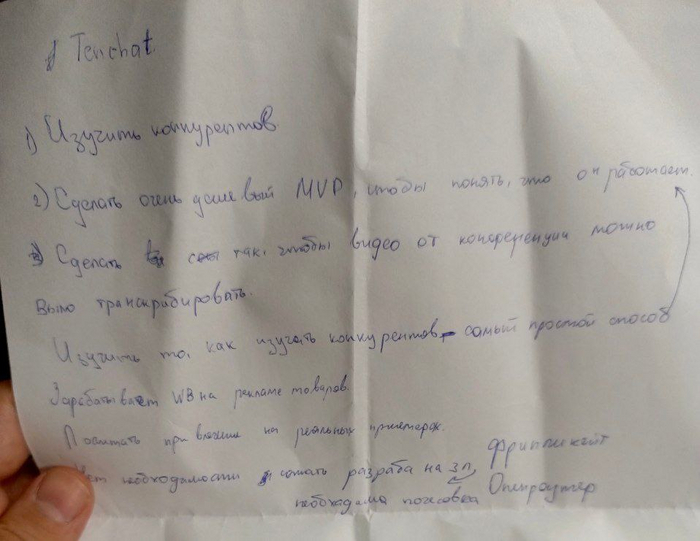 Tenchat
1) Изучить конкурентов
2) Сделать очень дешевый MVP, чтобы понять, что он работает.
Сделать так, чтобы видео от конференции можно
было транскрибировать.
Изучить то, как изучать конкурентов, самый простой способ
Зарабатывает WB на рекламе товаров.
на реальных примерах.
необходимости разраба на ЗП, Фрипликейт
необходима почасовка Опенроутер